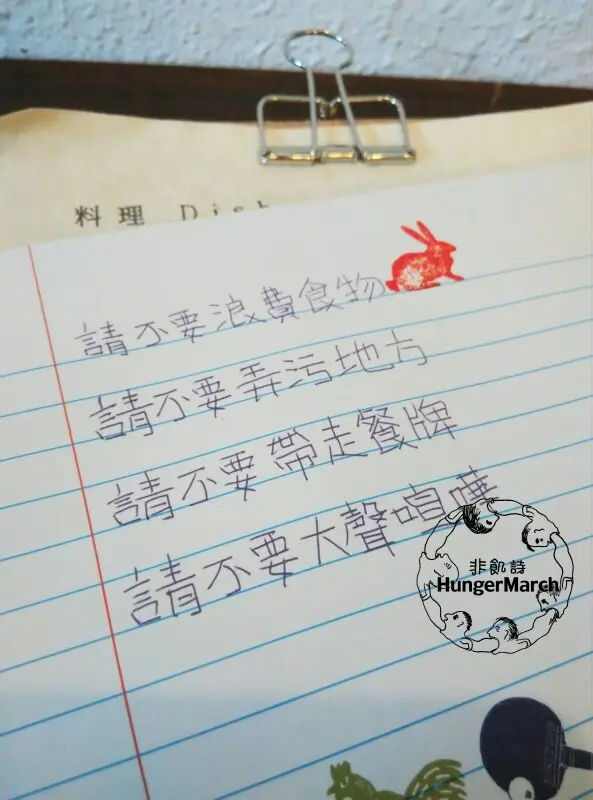 料理 Dish
請不要浪費食物
請不要弄污地方
請不要帶走餐牌
請不要大聲喧嘩
非飢詩
HungerMarch